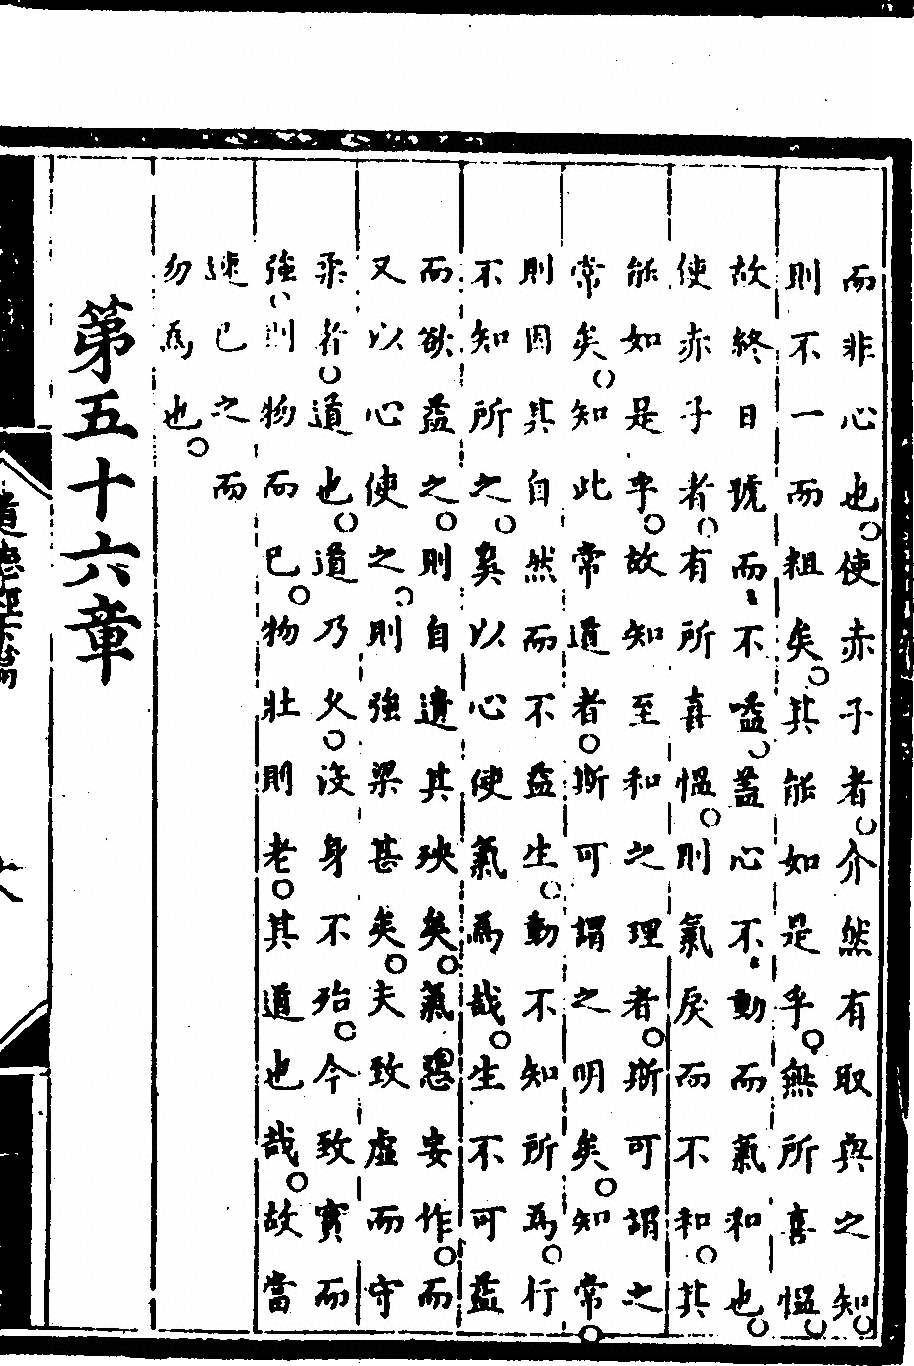 而非心也使赤子者介然有取與之知
則不一而粗矣其能如是乎無所喜慍
故終日號而不嗌蓋心不動而氣和也
使赤子者有所喜慍則氣戾而不和其
能如是乎故知至和之理者斯可謂之
常矣知此常道者斯可謂之明矣知常
則因其自然而不益生動不知所為行
不知所之奚以心使氣為哉生不可益
而欲益之則自遺其殃矣氣惡妄作而
又以心使之則強梁甚矣夫致虛而守
柔者道也道乃久沒身不殆今致實而
強則物而已物壯則老其道也哉故當
速已之而
勿為也
第五十六章
道德經下篇